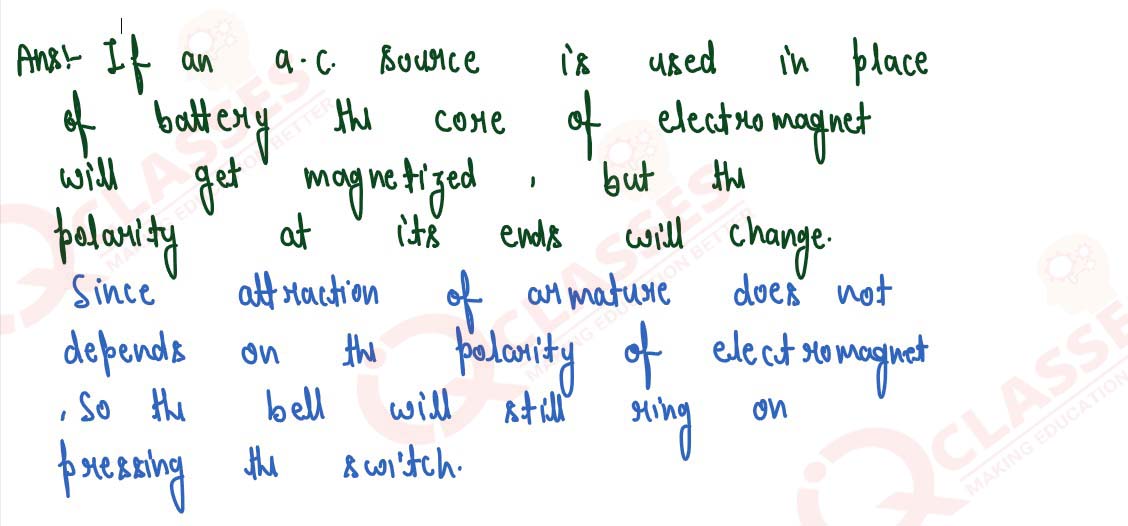 Ans:- If an a.c. source is used in place
of battery the core of electromagnet
will get magnetized , but the
polarity at its ends will change.
Since attraction of armature does not
depends on the polarity of electromagnet
, So the bell will still ring on
pressing the switch.
CLASSES
MAKING EDUCATION BETTER
CLASSES
MAKING EDUCATION BETTER
CLASSES
MAKING EDUCATION